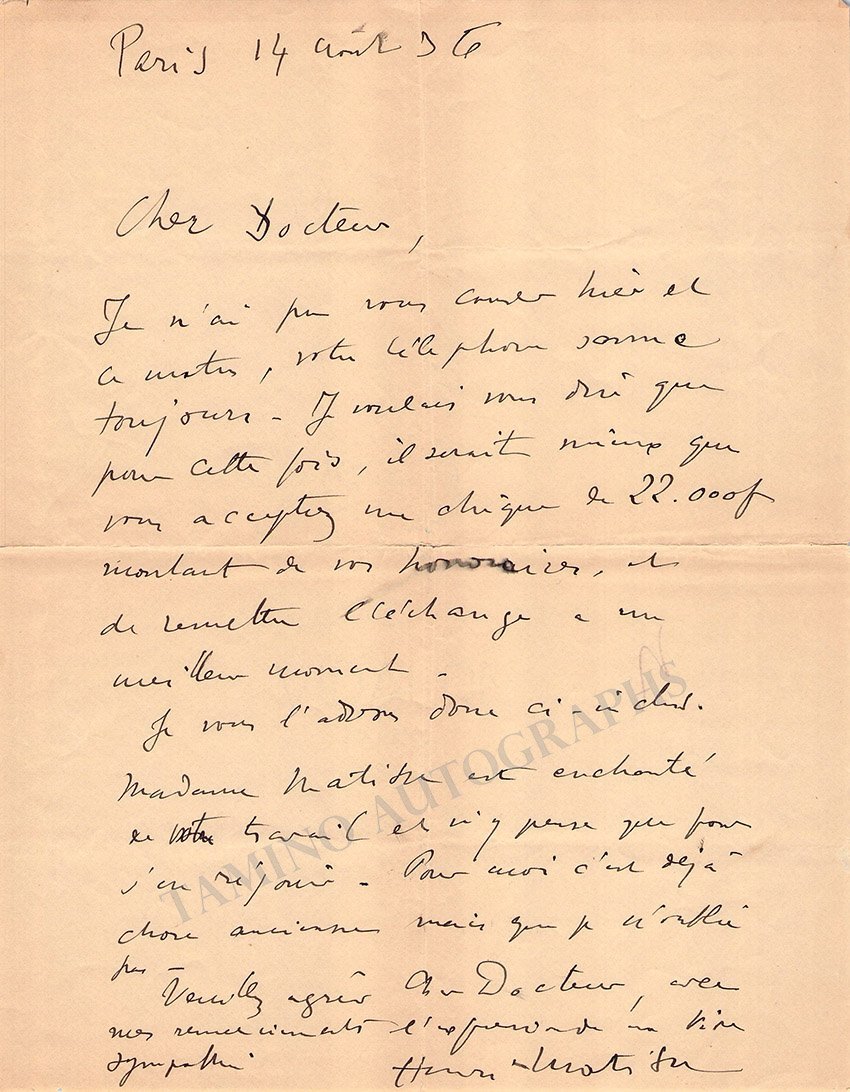 Paris 14 août 36
Cher Docteur,
Je n'ai pu vous causer hier et
ce matin, votre téléphone sonne
toujours - Je voulais vous dire que
pour cette fois, il serait mieux que
vous acceptiez un chèque de 22.000f
montant de vos honoraires, et
de remettre l'échange a un
meilleur moment.
Je vous l'adresse donc ci-inclus.
Madame Matisse est enchanté
de votre travail et n'y pense que pour
s'en réjouir - Pour moi c'est déjà
chose ancienne mais que je n'oublie
pas -
Veuillez agréer Cher Docteur, avec
mes remerciements l'expression de ma vive
sympathie
Henri Matisse
TAMINO AUTOGRAPHS